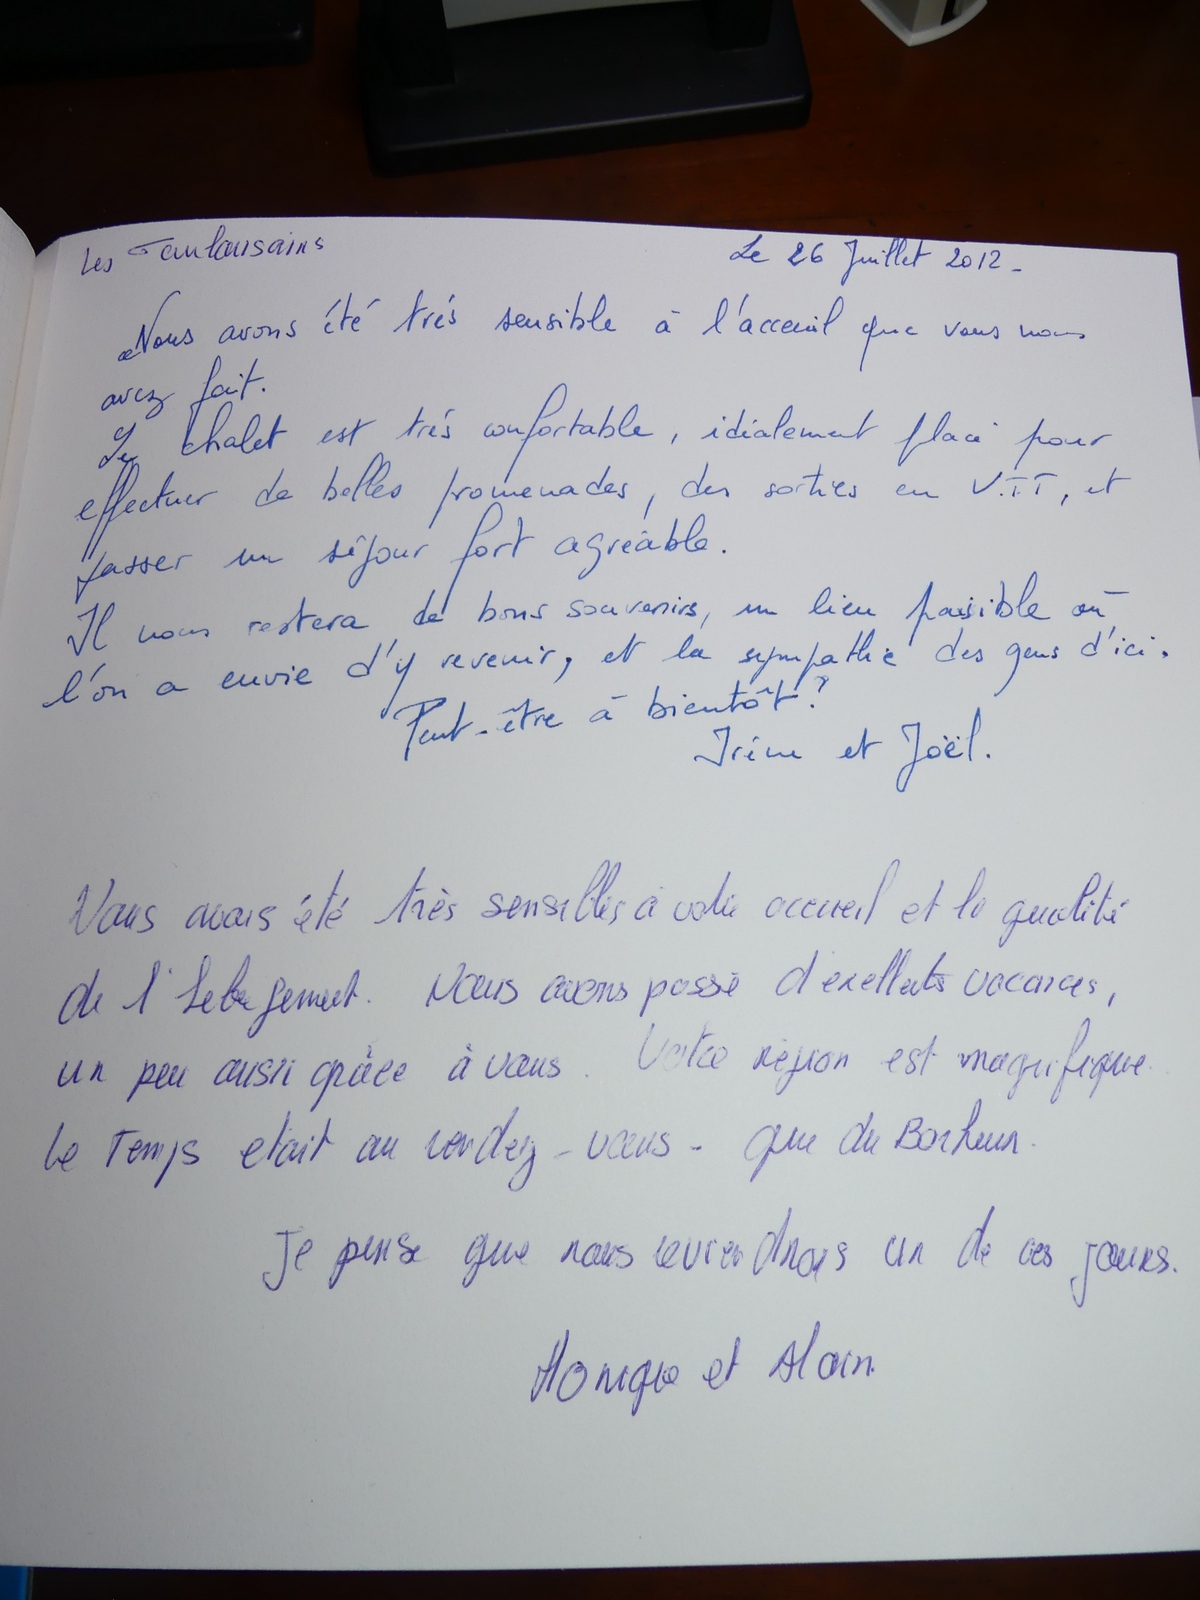 Les Toulousains
Le 26 Juillet 2012 -
Nous avons été très sensible à l'acceuil que vous nous
avez fait.
Le chalet est très confortable, idéalement placé pour
effectuer de belles promenades, des sorties en V.T.T, et
passer un séjour fort agréable.
Il nous restera de bons souvenirs, un lieu paisible où
l'on a envie d'y revenir, et la sympathie des gens d'ici.
Peut-être à bientôt?
Irène et Joël.
Nous avons été très sensibles à votre accueil et la qualité
de l'hebergement. Nous avons passé d'exellents vacances,
un peu aussi grâce à vous. Votre région est magnifique.
Le Temps etait au rendez-vous - que du Bonheur.
Je pense que nous reviendrons un de ces jours.
Monique et Alain.